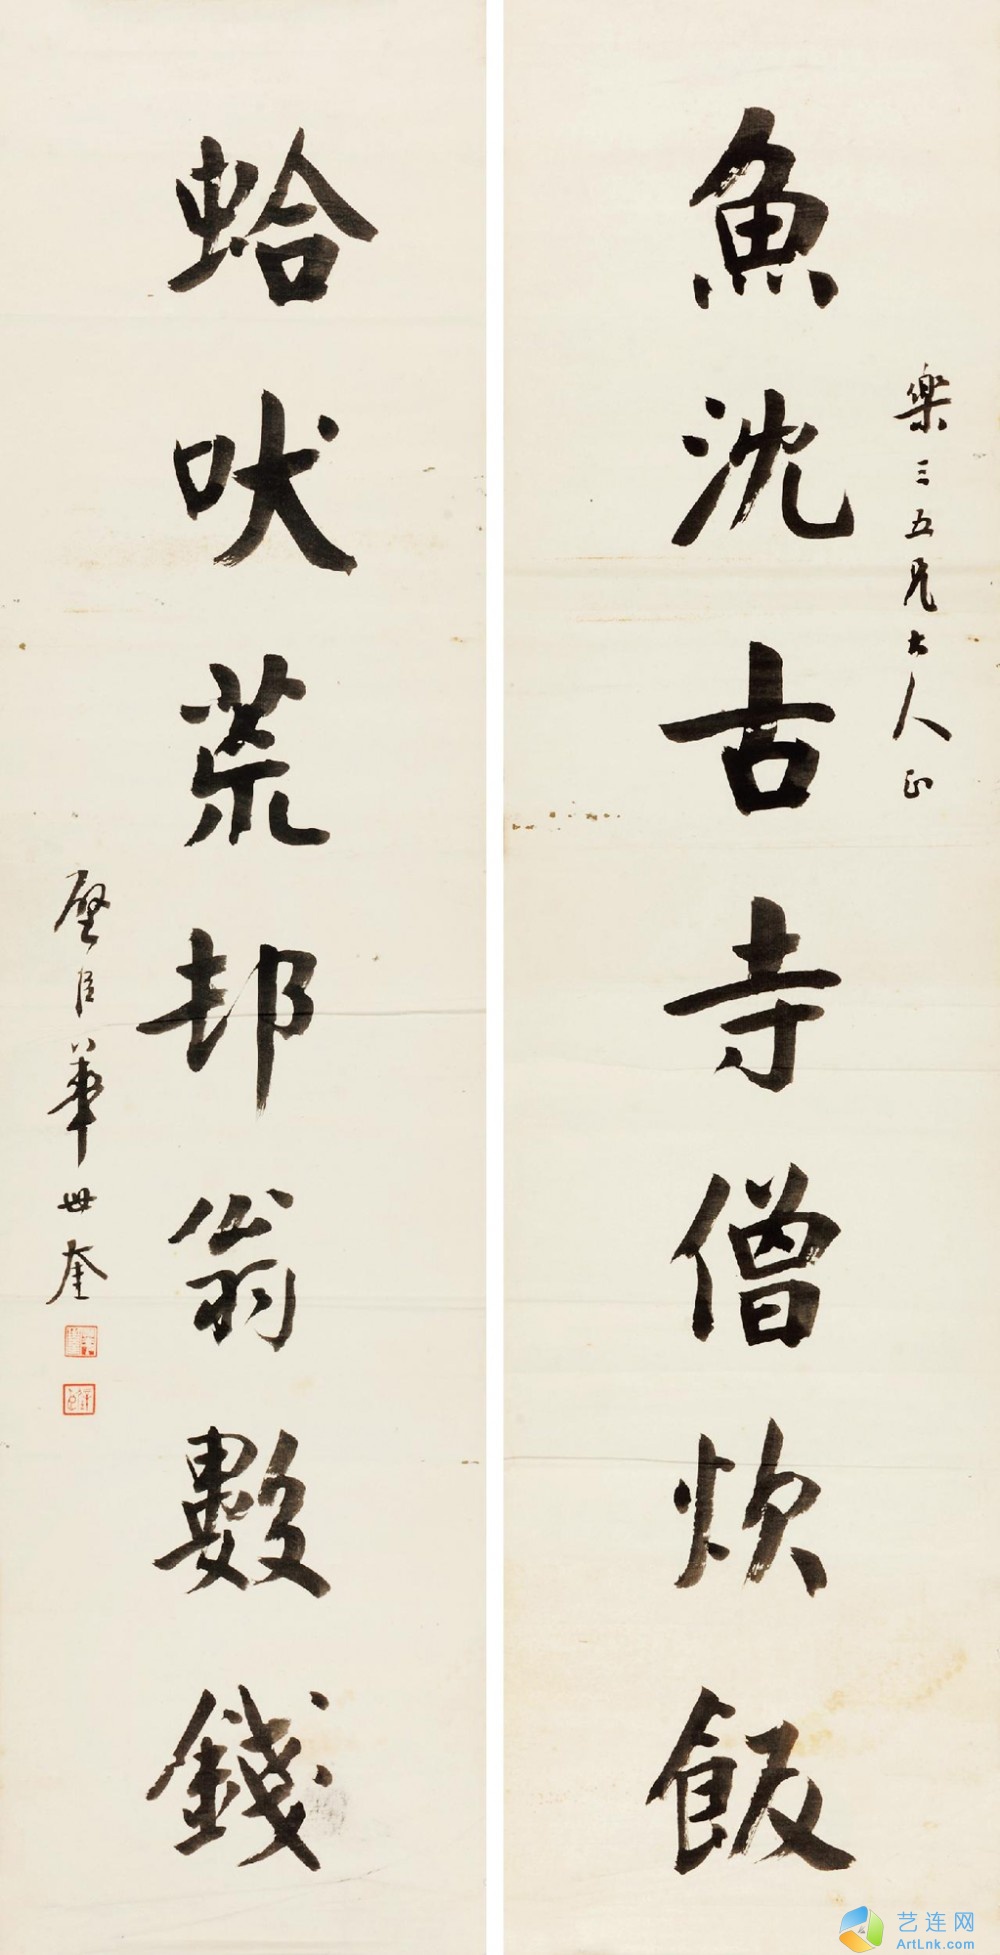 樂三五兄大人正
魚沈古寺僧炊飯
蛤吠荒邨翁數錢
璧臣華世奎
艺连网
ArtLnk.com